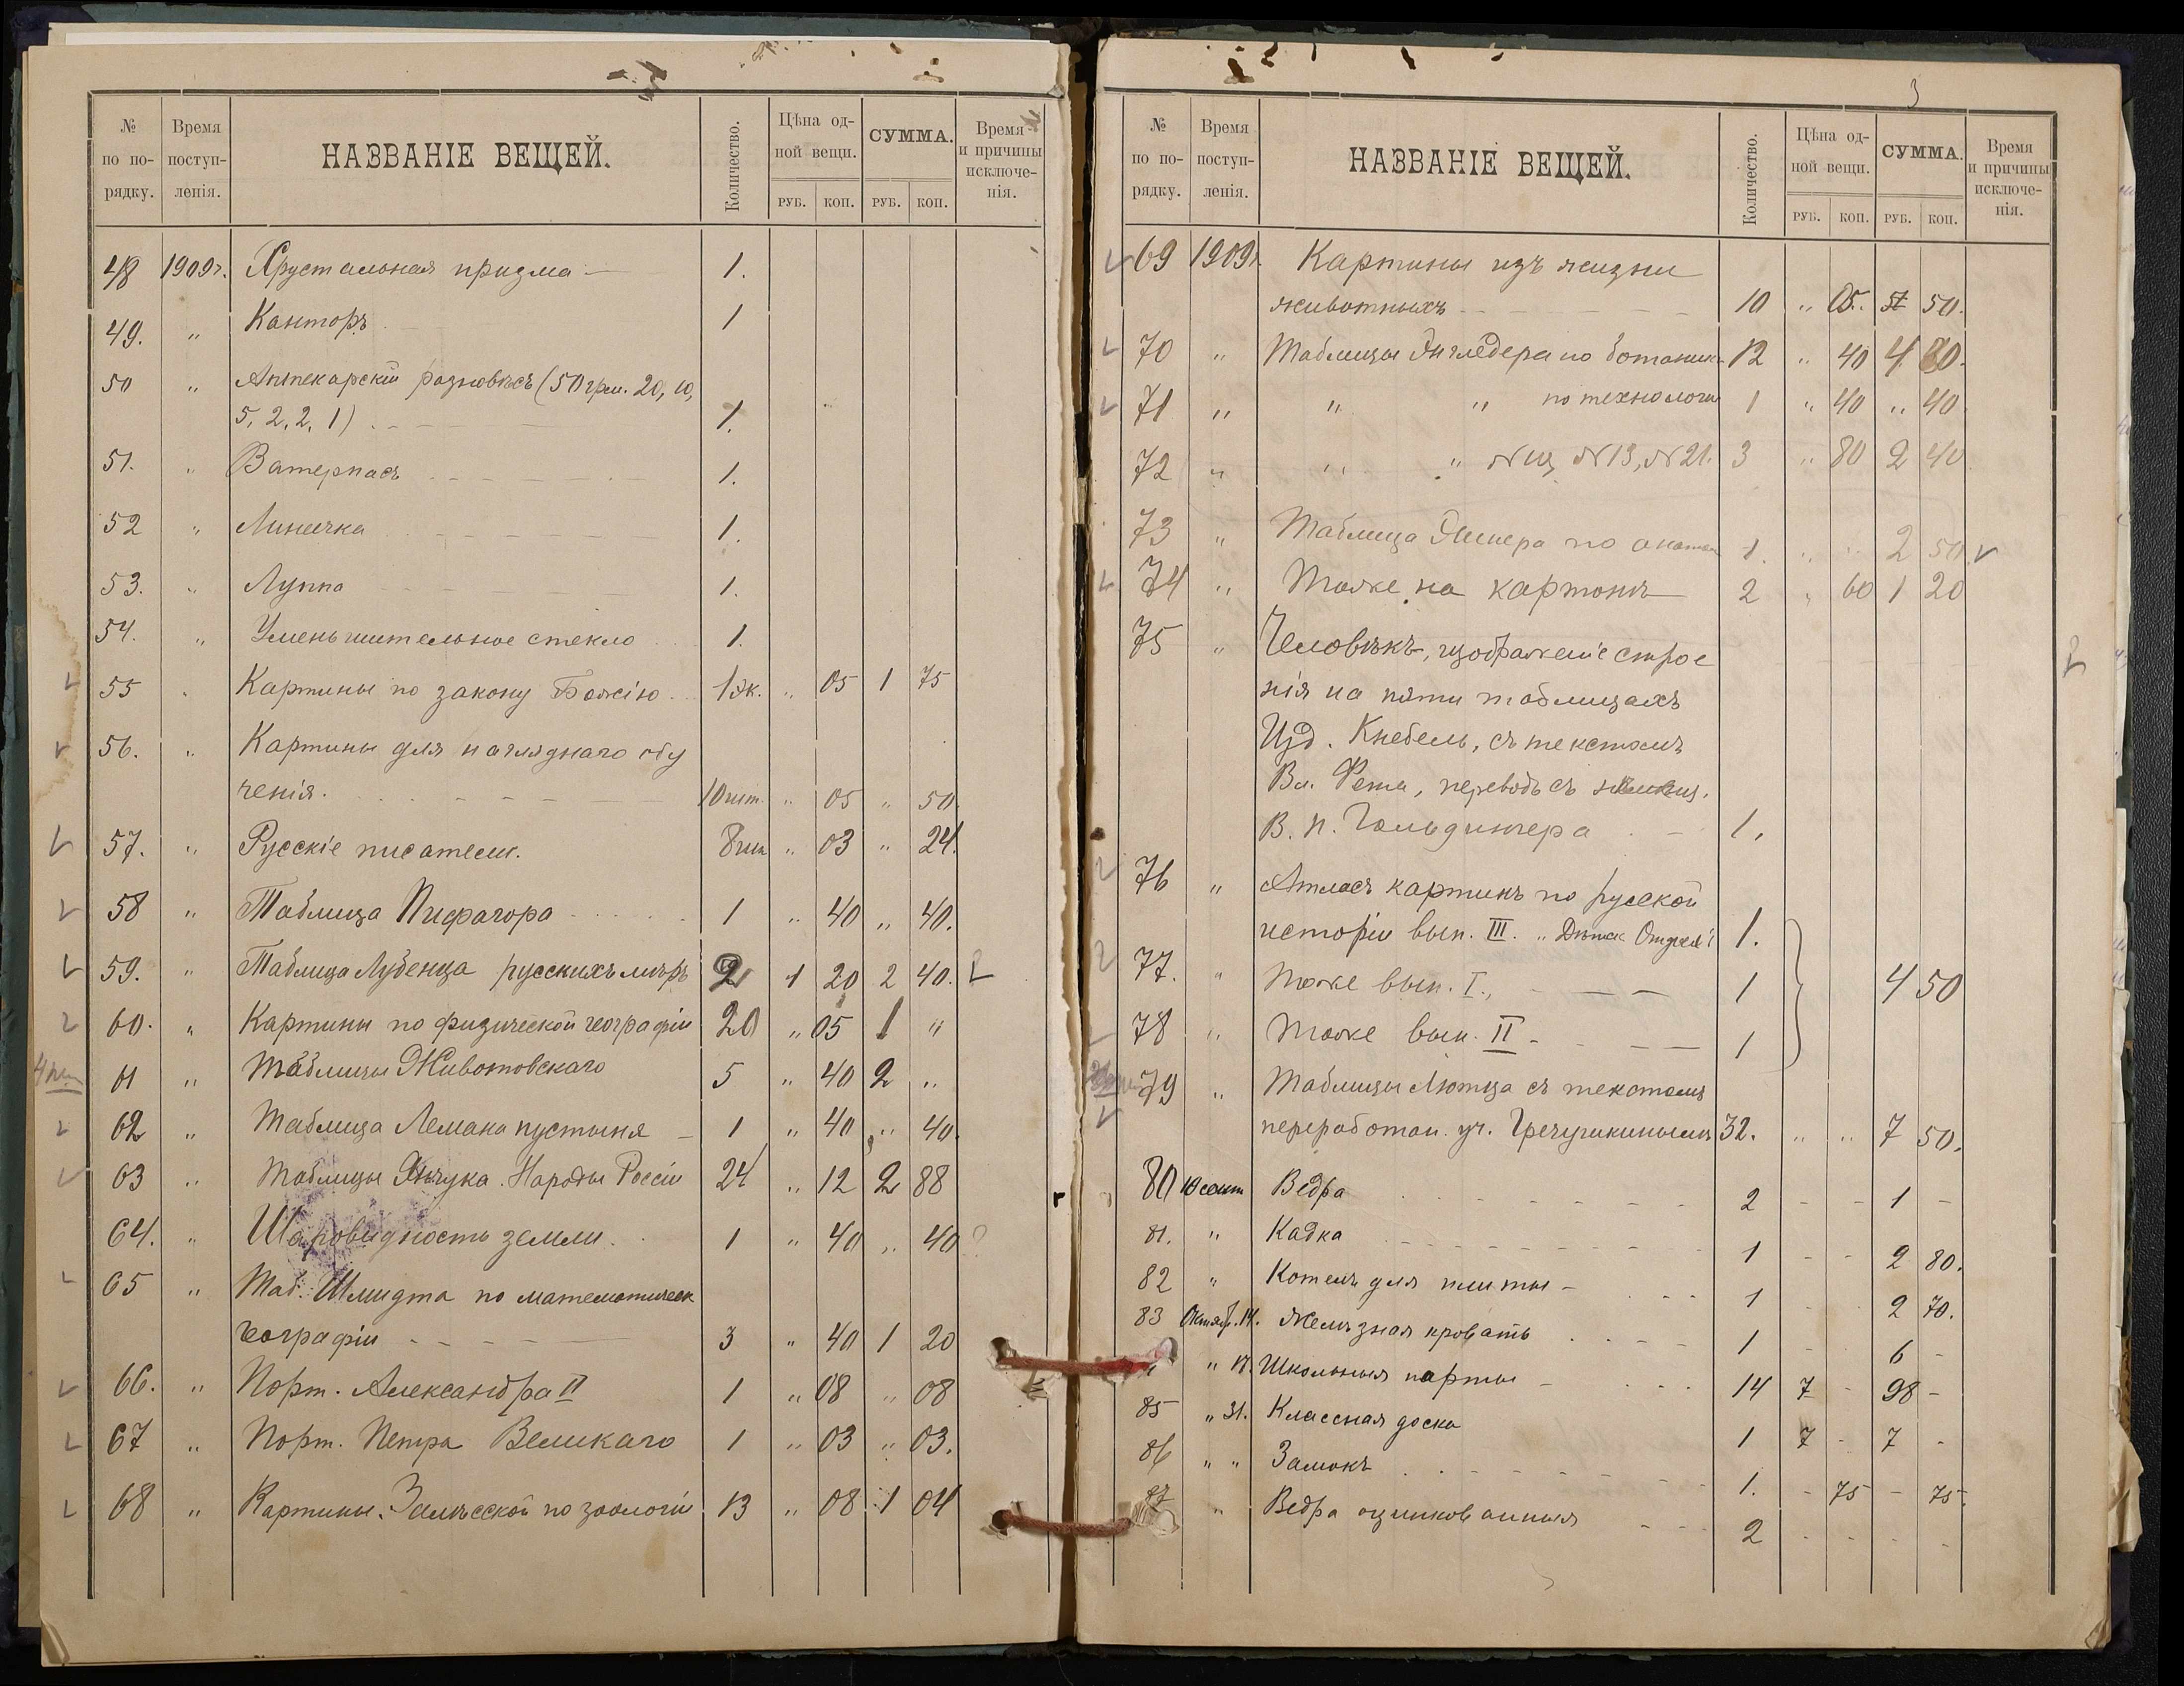 № по порядку. Время поступленія. НАЗВАНІЕ ВЕЩЕЙ. Количество. Цѣна одной вещи. СУММА. Время и причины исключенія.
РУБ. КОП. РУБ. КОП.
48 1909г. Хрустальная призма — 1.
49. " Канторъ 1
50 " Аптекарскій разновѣсъ (50 грм. 20, 10,
5, 2, 2, 1) 1.
51. " Ватерпасъ 1.
52 " Линеечка 1.
53. " Луппа 1.
54. " Уменьшительное стекло 1.
55 " Картины по закону Божію 1эк. " 05 1 75
56. " Картины для нагляднаго обу
ченія. 10 шт. " 05 " 50.
57. " Русскіе писатели. 8 шт " 03 " 24.
58 " Таблица Пифагора 1 " 40 " 40.
59. " Таблица Лубенца русскихъ мѣръ 2 1 20 2 40.
60. " Картины по физической географіи 20 " 05 1 "
4 шт 61 " Таблицы Животовскаго 5 " 40 2 "
62 " Таблица Лемана пустыня — 1 " 40 " 40.
63 " Таблицы Янчука. Народы Россіи 24 " 12 2 88
64. " Шаровидность земли. 1 " 40 " 40 ?
65 " Таб. Шмидта по математическ
географіи 3 " 40 1 20
66. " Порт. Александра II 1 " 08 " 08
67 " Порт. Петра Великаго 1 " 03 " 03.
68 " Картины. Залѣсской по зоологіи 13 " 08 1 04
3
№ по порядку. Время поступленія. НАЗВАНІЕ ВЕЩЕЙ. Количество. Цѣна одной вещи. СУММА. Время и причины исключенія.
РУБ. КОП. РУБ. КОП.
69 1909г. Картины изъ жизни
животныхъ 10 " 05. 50.
70 " Таблицы Энгледера по ботаник 12 " 40 4 80.
71 " " " по технологи 1 " 40 " 40.
72 " " " №13, №21. 3 " 80 2 40
73 " Таблица по анатом 1. " " 2 50
74 " Тоже на картонѣ 2 " 60 1 20
75 " Человѣкъ, изображеніе строе
нія на пяти таблицахъ
Изд. Кнебель, съ текстомъ
Вл. Фета, переводъ съ
В. П. Гольдингера 1.
76 " Атласъ картинъ по русской
исторіи вып. III. " 1.
77. " Тоже вып. I., 1 4 50
78 " Тоже вып. II 1
79 " Таблицы Лютца съ текстомъ
переработан. уч. Гречушкинымъ 32. " " 7 50.
80 10 сент Ведра 2 - - 1 -
81. " Кадка 1 - - 2 80.
82 " Котелъ для плиты — 1 2 70.
83 Октяб. 14. Желѣзная кровать 1 - 6 -
" 17. Школьныя парты — 14 7 - 98 -
85 " 31. Классная доска 1 7 - 7 -
86 " " Замокъ 1. - 75 - 75.
87 " Ведра оцинкованныя 2 - - - -